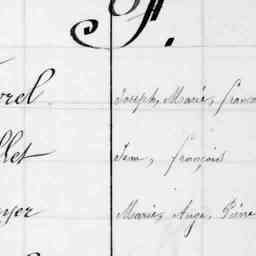 F.
orel Joseph, Marie, franço
llet Jean, françois
yer Marie, Ange, Pierre